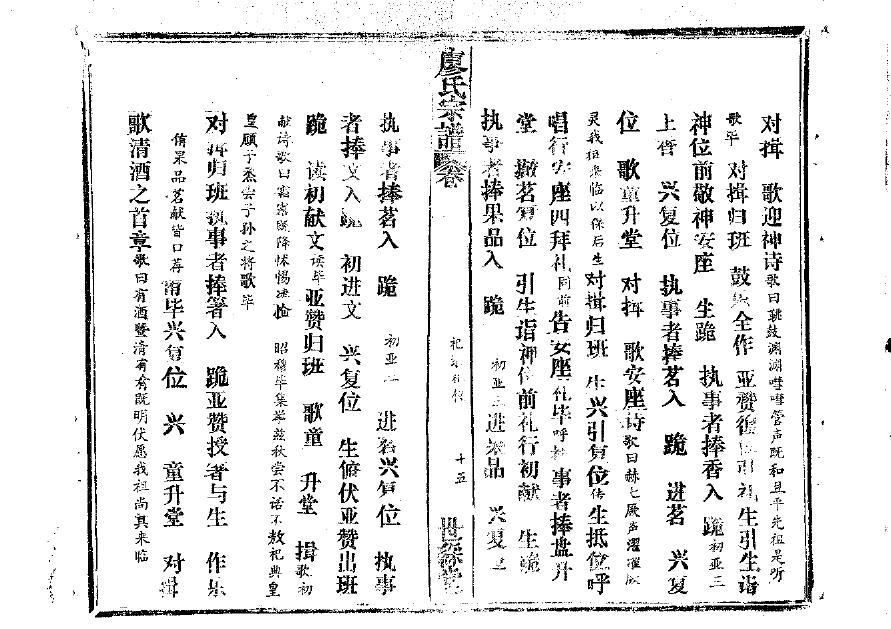 对揖 歌迎神诗 歌曰鼗鼓渊渊嘒嘒管声既和且平先祖是听
歌毕 对揖归班 鼓乐全作 亚赞复位引礼生引生诣
神位前敬神安座 生跪 执事者捧香入 跪 初亚三
上香 兴复位 执事者捧茗入 跪 进茗 兴复
位 歌童升堂 对揖 歌安座诗 歌曰赫赫厥声濯濯厥
灵我祖来临以保后生 对揖归班 生兴引复位 生抵位呼
唱行安座四拜礼 同前 告安座礼毕 呼执事者捧盘升
堂 撤茗复位 引生诣神位前礼行初献 生跪
执事者捧果品入 跪 初亚三 进果品 兴复位
廖氏宗谱 卷
十五
执事者捧茗入 跪 初亚三 进茗兴复位 执事
者捧文入跪 初进文 兴复位 生俯伏亚赞出班
跪 读初献文 读毕 亚赞归班 歌童 升堂 揖 歌初
献诗歌曰霜露既降怵惕悽怆 昭穆毕集举兹秋尝不话不敖祀典皇
皇顾予烝尝子孙之将歌毕
对揖归班执事者捧箸入 跪亚赞授箸与生 作乐
侑果品茗献皆口再 侑毕兴复位 兴 童升堂 对揖
歌清酒之首章 歌曰有酒暨清有肴既明伏愿我祖尚其来临